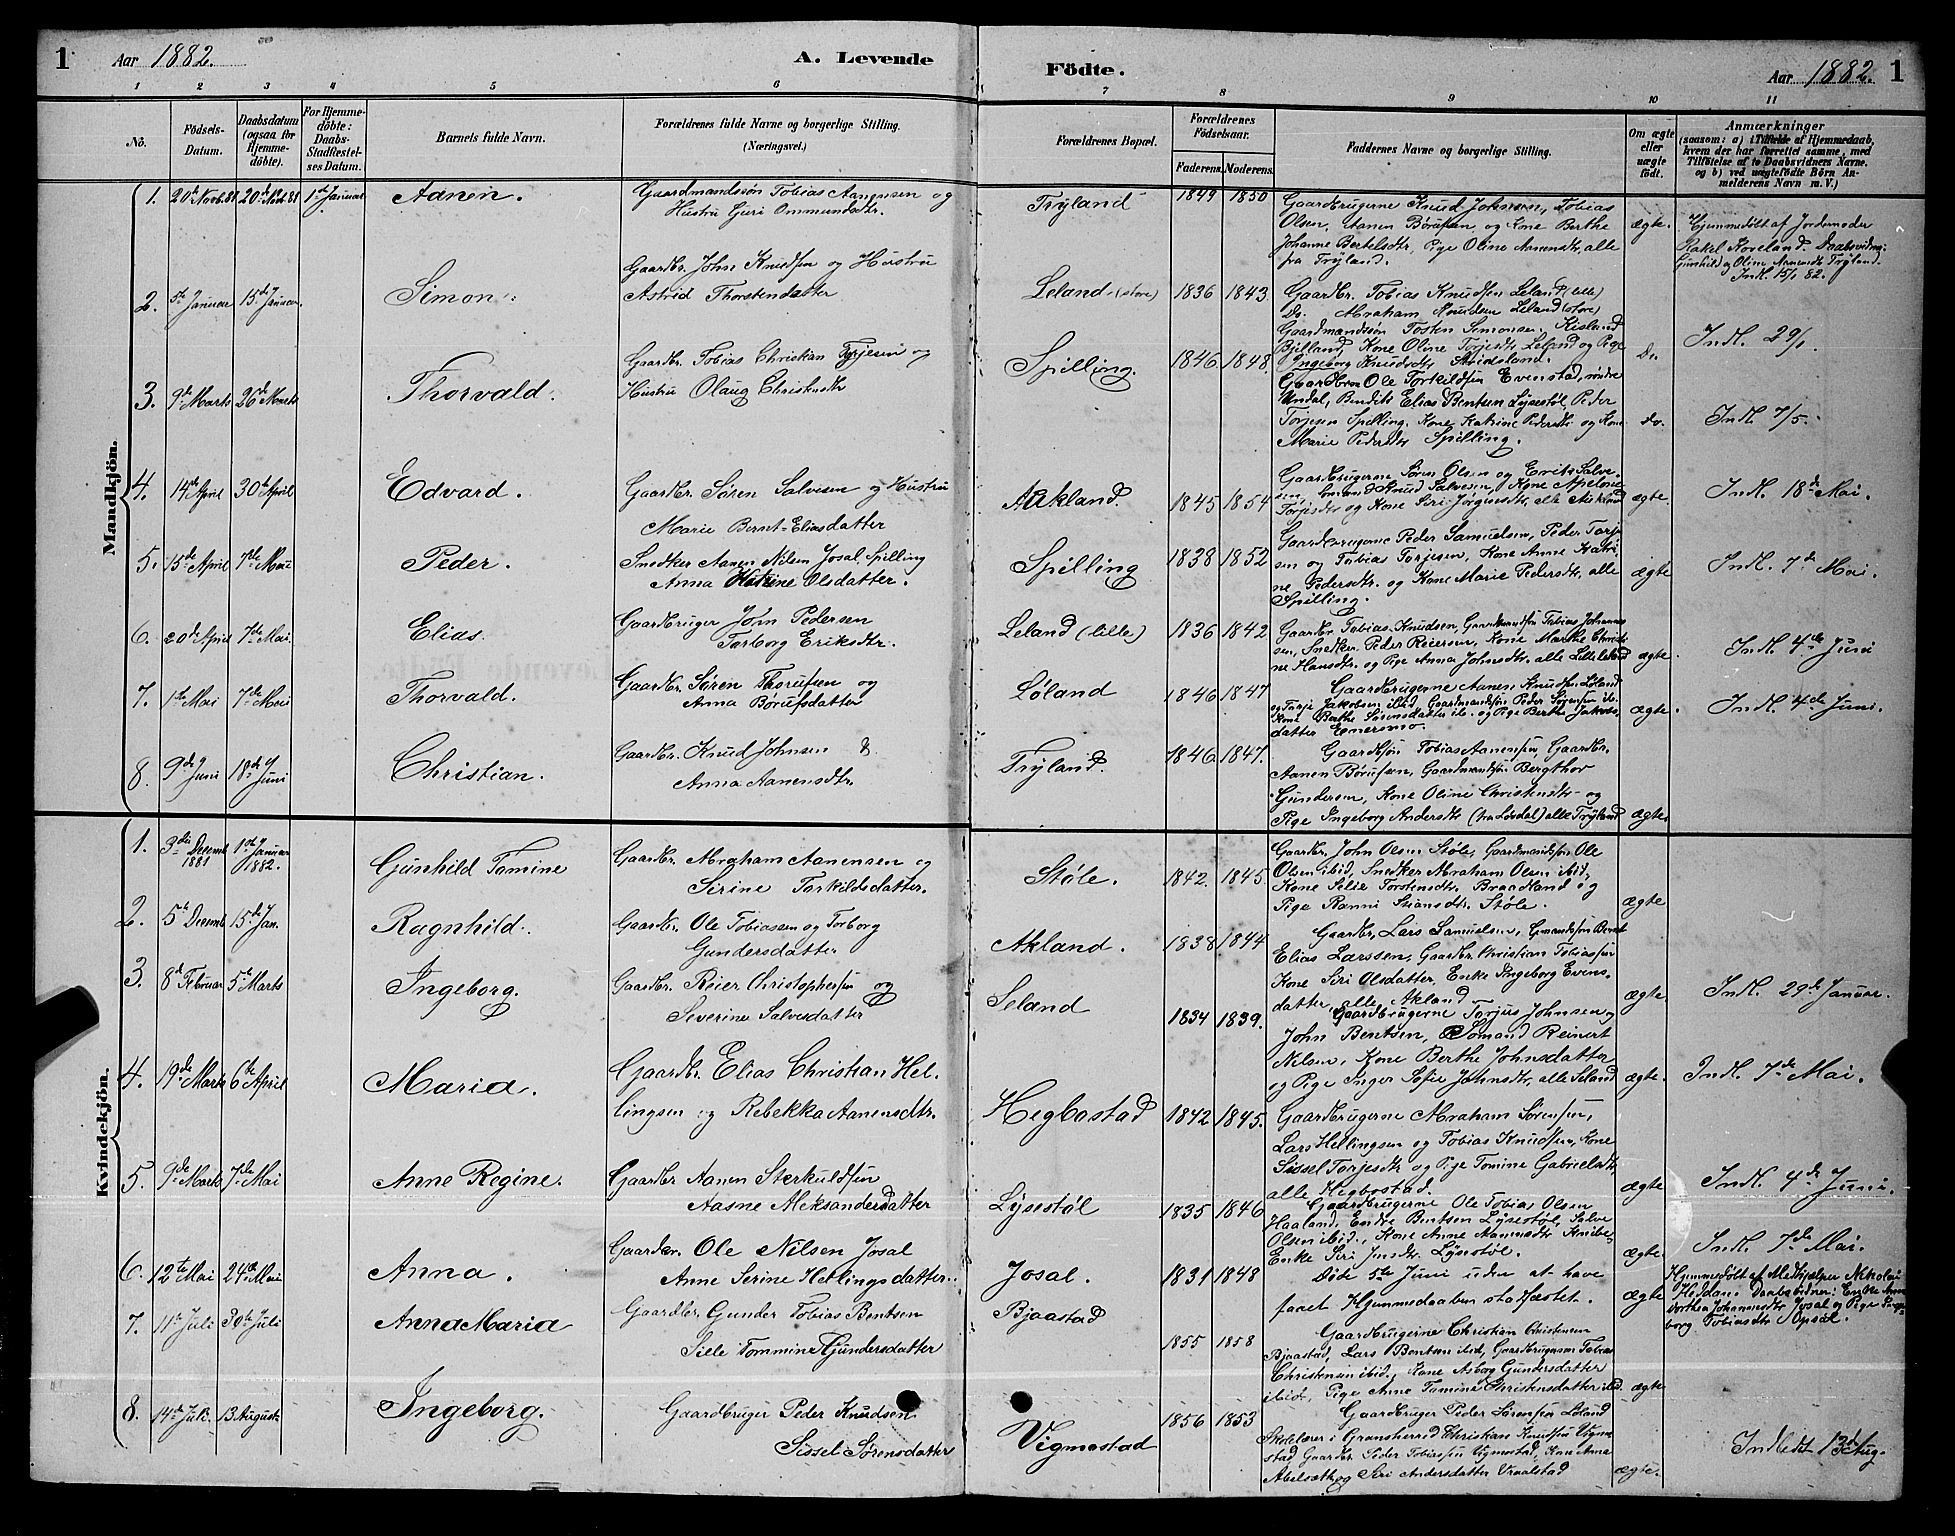 1
Aar 1882.
A. Levende
Födte.
Aar 1882.
1
1 2 3 4 5 6 7 8 9 10 11
No.
Födsels-
Datum.
Daabsdatum
(ogsaa for
Hjemme-
döbte).
For Hjemme-
döbte:
Daabs-
Stadfæstel-
ses Datum.
Barnets fulde Navn.
Forældrenes fulde Navne og borgerlige Stilling.
(Næringsvei.)
Forældrenes Bopæl.
Forældrenes
Födselsaar.
Faderens. Moderens.
Faddernes Navne og borgerlige Stilling.
Om ægte
eller
uægte
födt.
Anmærkninger
(saasom: a) i Tilfælde af Hjemmedaab,
hvem der har forrettet samme, med
Tilföielse af to Daabsvidners Navne.
og b) ved uægtefödte Börn An-
melderens Navn m. V.)
Mandkjön.
1. 20de Novb. 81 20de Novb 81 1ste Januar
Aanen.
Gaardmandssøn Tobias Aanensen og
Hustru Guri Ommundsdtr.
Tryland
1849 1850
Gaardbrugerne Knud Johnsen, Tobias
Olsen, Aanen Børufsen, og Kone Berthe
Johanne Bertelsdtr, Pige Oline Anensdtr, alle
fra Tryland.
ægte.
Hjemmedøbt af Jordemoder
Rakel Koveland. Daabsvidne:
Gunhild og Oline Tryland.
Indl. 15/1 82.
2. 5te Januar 15de Januar.
Simon.
Gaardbr. John Knudsen og Hustru
Astrid Thorstendatter
Leland (store)
1836 1843
Gaardbr. Tobias Knudsen Leland (lille)
Do. Abraham Knudsen Leland (store)
Gaardmandssøn Tosten Simonsen, Kisland
Bjelland, Kone Oline Torjesdtr Leland og Pige
Ingeborg Knudsdtr
Do
Indl. 29/1
3. 9de Marts 26de Marts
Thorvald.
Gaardbr. Tobias Christian Terjesen og
Hustru Olaug Christensdtr
Spilling.
1846. 1848
Gaardbrn Ole Torkildsen Evenstad, søndre
Undal, Bendit Elias Bentsen Lysestøl, Peder
Torjesen Spilling. Kone Katrine Pedersdtr og Kone
Marie Pedersdtr Spilling.
Do.
Indl. 7/5.
4. 14de April 30te April
Edvard.
Gaardbr. Søren Salvesen og Hustru
Marie Bernt-Eliasdatter
Aikland.
1845 1854
Gaardbrugerne Søren Olsen og Erik Salve-
sen, Knud Salvesen, Kone
Torjesdtr og Kone Siri Jørgensdtr, alle Aikland
ægte.
Indl. 18de Mai.
5. 15de April 7de Mai
Peder.
Snedker Aanen Nilsen Josal, Spilling
Anna Katrine Olsdatter.
Spilling
1838 1852
Gaardbrugerne Peder Samuelsen, Peder Torje-
sen og Tobias Torjesen, Kone Anne Katri-
ne Pedersdtr. og Kone Marie Pedersdtr, alle
Spilling.
ægte
Indl. 7de Mai.
6. 20de April 7de Mai.
Elias.
Gaardbruger Jørn Pedersen
Torborg Eriksdtr.
Leland (lille)
1836 1842
Gaardbr. Tobias Knudsen, Gaardmandssøn Tobias Johannes-
sen, Snedker Peder Reiersen, Kone Marthe Christi-
ne Hansdtr. og Pige Anna Johnsdtr. alle Lilleleland
ægte.
Indl. 4de Juni
7. 1ste Mai 7de Mai
Thorvald.
Gaardbr. Søren Thorufsen og
Anna Børufsdatter
Løland
1846 1847
Gaardbrugerne Aanen Knudsen Løland
og Terje Jakobsen ibid, Gaardmandssøn Peder Sørensen ib.
Kone Berthe Sørensdatter ib. og Pige Berthe Jakobs-
datter
ægte.
Indl. 4de Juni.
8. 9de Juni 18de Juni
Christian.
Gaardbr. Knud Johnsen &
Anna Aanensdtr.
Tryland.
1846. 1847.
Gaardbssøn Tobias Aanensen, Gaardbr.
Aanen Børufsen, Gaardmandssøn Bergthor
Gundersen, Kone Oline Christensdtr og
Pige Ingeborg Andersdtr (fra Løvdal) alle Tryland
ægte.
Kvindekjön.
1. 3die Decemb 1881 1ste Januar 1882.
Gunhild Tomine
Gaardbr. Abraham Aanensen og
Serine Torkildsdatter.
Støle.
1842. 1845.
Gaardbr. John Olsen Støle, Gaardmandssøn Ole
Olsen ibid, Snedker Abraham Olsen ibid,
Kone Selie Torstensdtr. Braadland og
Pige Ranni Stiansdtr Støle.
ægte
2. 5te Decemb 15de Jan.
Ragnhild.
Gaardbr. Ole Tobiassen og Torborg
Gundersdatter
Akland.
1838 1844
Gaardbr. Lars Samuelsen, Gmandssøn Bernt
Elias Larssen, Gaardbr Christian Tobiassen
Kone Siri Olsdatter, Enke Ingeborg Evens-
datter, alle Akland
ægte
Indl. 29de Januar.
3. 8de Februar 5te Marts
Ingeborg.
Gaardbr. Reier Christophersen og
Severine Salvesdatter
Seland
1834 1839.
Gaardbrugerne Torjus Johnsen og
John Bentsen, Somand Reinert
Nilsen, Kone Berthe Johnsdatter
og Pige Inger Sofie Johnsdtr, alle Seland
ægte.
Indl. 7de Mai.
4. 19de Marts 6te April
Maria.
Gaardbr. Elias Christian Hel-
lingsen og Rebekka Aanensdtr.
Hegbostad
1842 1845.
Gaardbrugerne Abraham Sørensen,
Lars Hellingsen og Tobias Knudsen, Kone
Sissel Torjesdtr og Pige Tomine Gabrielsdtr
alle Hegbostad.
ægte
Indl. 4de Juni.
5. 9de Marts 7de Mai
Anne Regine.
Gaardbr Aanen Sterkuldsen
Aasne Aleksandersdatter
Lysestøl
1835 1846
Gaardbrugerne Ole Tobias Olsen
Haaland, Endre Bentsen Lysestøl, Salve
Olsen ibid., Kone Anne Aanensdtr
Enke Siri Lysestøl.
ægte.
Indl. 7de Mai.
6. 12te Mai 24de Mai
Anna.
Gaardbr. Ole Nilsen Josal
Anne Serine Hellingsdatter.
Josal.
1831 1848
Døde 5te Juni uden at have
faaet Hjemmedaaben stadfæstet.
ægte
Hjemmedøbt af Medhjælper Nikolai
Heddan. Daabsvidner: Enke Anne
Dorthea Johannesdtr Josal og Pige Inge-
borg Tobiasdtr Opsal.
7. 11te Juli 30te Juli
Anna Maria
Gaardbr. Gunder Tobias Bentsen
Sille Tommine Gundersdatter
Bjaastad
1855 1858
Gaardbrugerne Christian Christensen
Bjaastad, Lars Bentsen ibid, Gaardbrugersøn Tobias
Christensen ibid, Kone Asborg Gundersdatter
ibid, Pige Anne Tomine Christensdatter ibid.
ægte
8. 14de Juli. 13 August
Ingeborg.
Gaardbruger Peder Knudsen
Sissel Sørensdatter
Vigmostad
1856 1853
Gaardbruger Peder Sørensen Løland
Skolelærer i Gransherred Christian Knudsen Vigmo-
stad Gaardbr. Peder Tobiassen Vigmostad, Kone Anna
Abelsæth og Siri Andersdatter Vraalstad
ægte.
Indledet 13de Aug.